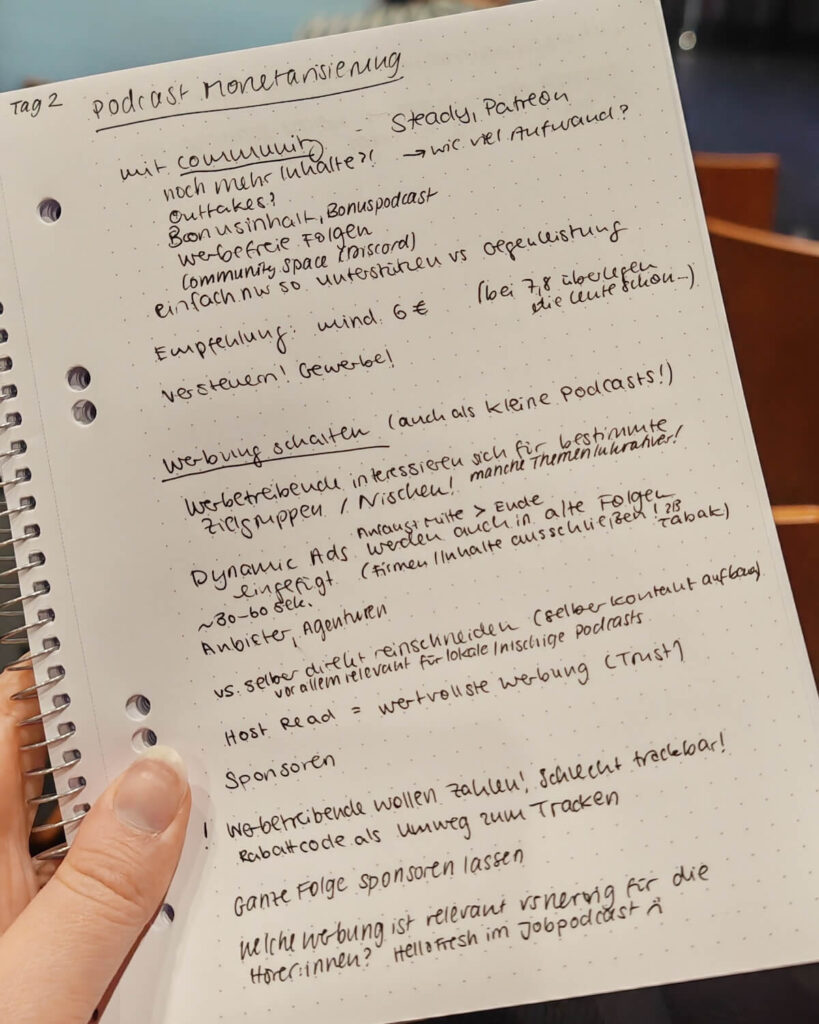 Tag 2 Podcast Monetarisierung
mit Community - Steady, Patreon
noch mehr Inhalte?! → wie viel Aufwand?
Outtakes?
Bonusinhalt, Bonuspodcast
werbefreie Folgen
Community Space (Discord)
einfach nur so unterstützen vs Gegenleistung
Empfehlung: mind. 6 € (bei 7,8 überlegen
die Leute schon...)
versteuern! Gewerbe!
Werbung schalten (auch als kleine Podcasts!)
Werbetreibende interessieren sich für bestimmte
Zielgruppen / Nischen! manche Themen lukrativer!
Mitte > Ende
Dynamic Ads werden auch in alte Folgen
eingefügt (Firmen / Inhalte ausschließen! zB
Tabak)
~30-60 Sek.
Anbieter, Agenturen
vs. selber direkt reinschneiden (selber Kontakt aufbau)
vor allem relevant für lokale / nischige Podcasts
Host Read = wertvollste Werbung (Trust)
Sponsoren
! Werbetreibende wollen Zahlen! schlecht trackbar!
Rabattcode als Umweg zum Tracken
Ganze Folge sponsoren lassen
Welche Werbung ist relevant vs nervig für die
Hörer:innen? HelloFresh im Jobpodcast